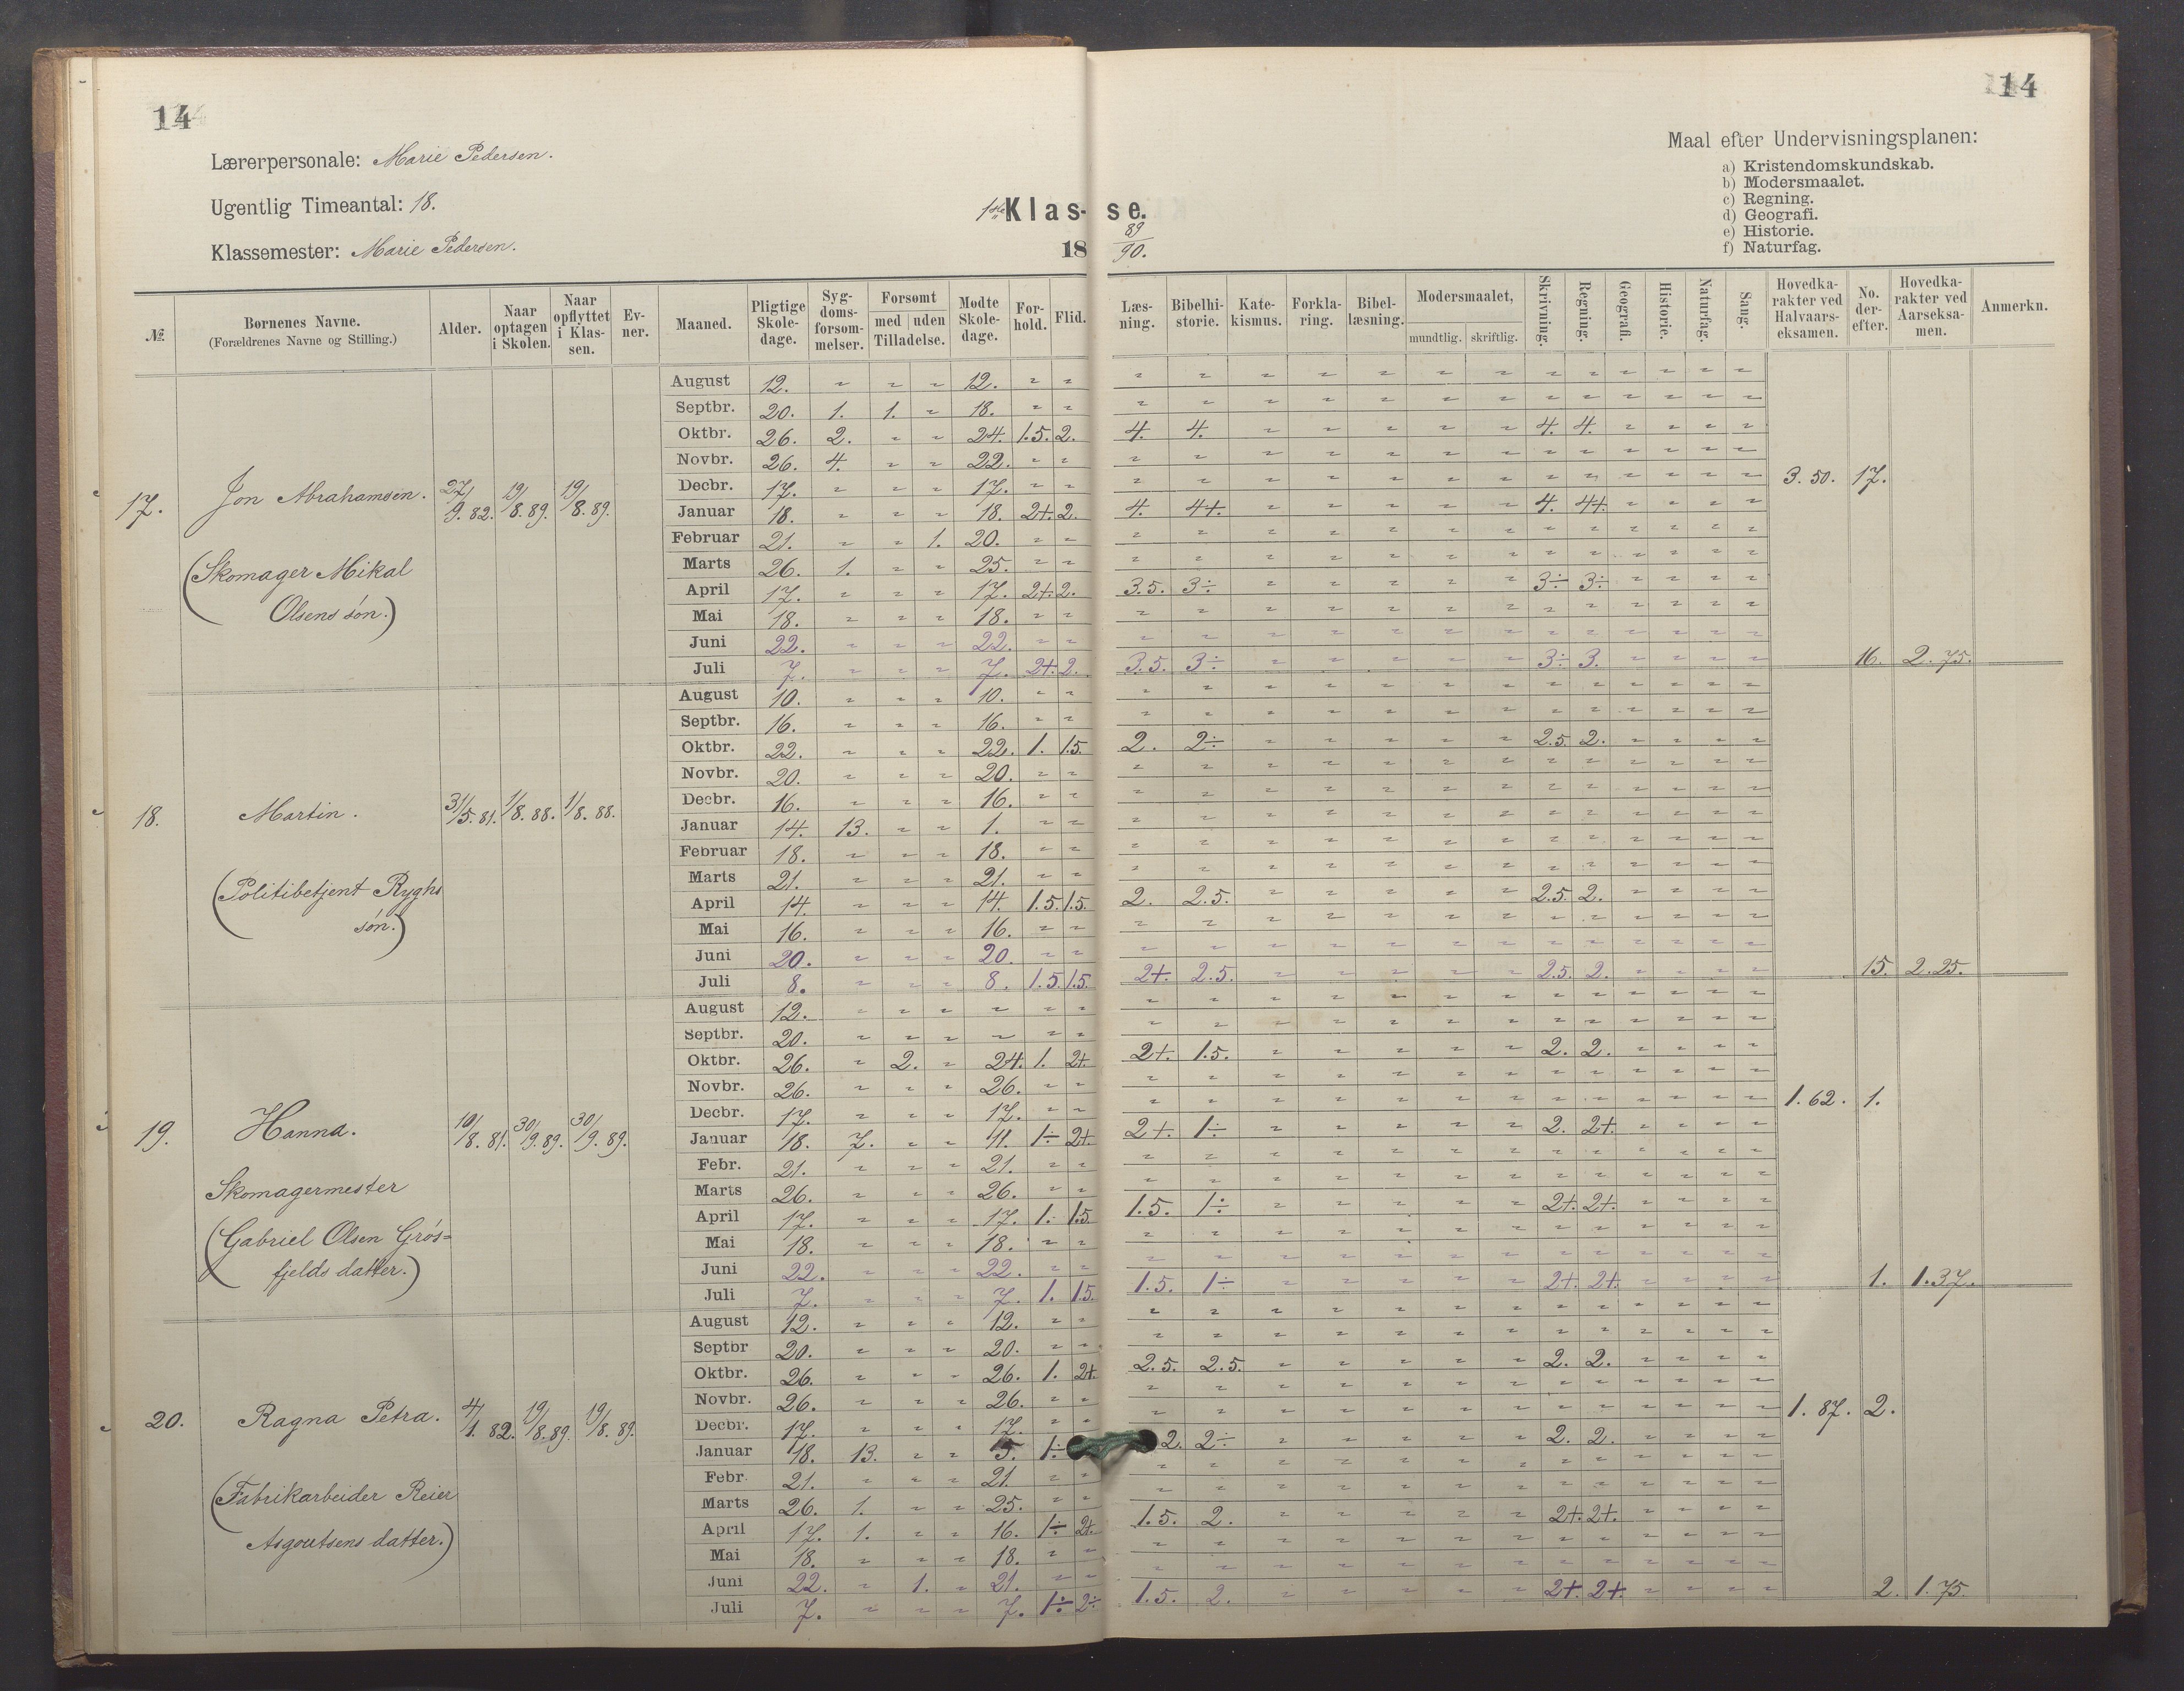 14
14
Lærerpersonale: Marie Pedersen.
Ugentlig Timeantal: 18.
Klassemester: Marie Pedersen.
1ste Klas- se.
18 89/90.
Maal efter Undervisningsplanen:
a) Kristendomskundskab.
b) Modersmaalet.
c) Regning.
d) Geografi.
e) Historie.
f) Naturfag.
№ | Børnenes Navne. (Forældrenes Navne og Stilling.) | Alder. | Naar optagen i Skolen. | Naar opflyttet i Klassen. | Evner. | Maaned. | Pligtige Skoledage. | Sygdomsforsømmelser. | Forsømt med Tilladelse. | uden Tilladelse. | Mødte Skoledage. | Forhold. | Flid. | Læsning. | Bibelhistorie. | Katekismus. | Forklaring. | Bibellæsning. | Modersmaalet, mundtlig. | skriftlig. | Skrivning. | Regning. | Geografi. | Historie. | Naturfag. | Sang. | Hovedkarakter ved Halvaarseksamen. | No. derefter. | Hovedkarakter ved Aarseksamen. | Anmerkn.
17. Jon Abrahamsen. 27/9. 82. 19/8. 89. 19/8. 89.
(Skomager Mikal
Olsens søn.)
August 12. " " " 12. " "
Septbr. 20. 1. 1. " 18. " "
Oktbr. 26. 2. " " 24. 1.5. 2. 4. 4. " " " " " 4. 4. " " " "
Novbr. 26. 4. " " 22. " "
Decbr. 17. " " " 17. " " 3.50. 17.
Januar 18. " " " 18. 2+. 2. 4. 4+. " " " " " 4. 4+. " " " "
Februar 21. " " 1. 20. " "
Marts 26. 1. " " 25. " "
April 17. " " " 17. 2+. 2. 3.5. 3÷ " " " " " 3÷ 3÷ " " " "
Mai 18. " " " 18. " "
Juni 22. " " " 22. " "
Juli 7. " " " 7. 2+. 2. 3.5. 3÷ " " " " " 3÷ 3. " " " " 16. 2.75.
18. Martin. 31/5. 81. 1/8. 88. 1/8. 88.
(Politibetjent Ryghs
søn.)
August 10. " " " 10. " "
Septbr. 16. " " " 16. " "
Oktbr. 22. " " " 22. 1. 1.5. 2. 2÷ " " " " " 2.5. 2. " " " "
Novbr. 20. " " " 20. " "
Decbr. 16. " " " 16. " "
Januar 14. 13. " " 1. " "
Februar 18. " " " 18. " "
Marts 21. " " " 21. " "
April 14. " " " 14. 1.5. 1.5. 2. 2.5. " " " " " 2.5. 2. " " " "
Mai 16. " " " 16. " "
Juni 20. " " " 20. " "
Juli 8. " " " 8. 1.5. 1.5. 2+. 2.5. " " " " " 2.5. 2. " " " " 15. 2.25.
19. Hanna. 10/8. 81. 30/9. 89. 30/9. 89.
Skomagermester
(Gabriel Olsen Grøs=
fjelds datter.)
August 12. " " " " " "
Septbr. 20. " " " " " "
Oktbr. 26. " 2. " 24. 1. 2+. 2+. 1.5. " " " " " 2. 2. " " " "
Novbr. 26. " " " 26. " "
Decbr. 17. " " " 17. " " 1.62. 1.
Januar 18. 7. " " 11. 1÷ 2+. 2+. 1÷ " " " " " 2. 2+. " " " "
Febr. 21. " " " 21. " "
Marts 26. " " " 26. " "
April 17. " " " 17. 1. 1.5. 1.5. 1÷ " " " " " 2+. 2+. " " " "
Mai 18. " " " 18. " "
Juni 22. " " " 22. " "
Juli 7. " " " 7. 1. 1.5. 1.5. 1÷ " " " " " 2+. 2+. " " " " 1. 1.37.
20. Ragna Petra. 4/1. 82. 19/8. 89. 19/8. 89.
(Fabrikarbeider Reier
Asgoutsens datter.)
August 12. " " " 12. " "
Septbr 20. " " " 20. " "
Oktbr. 26. " " " 26. 1. 2+. 2.5. 2.5. " " " " " 2. 2. " " " "
Novbr. 26. " " " 26. " "
Decbr. 17. " " " 17. " " 1.87. 2.
Januar 18. 13. " " 5. 1÷ 2. 2÷ " " " " " 2. 2. " " " "
Febr. 21. " " " 21. " "
Marts 26. 1. " " 25. " "
April 17. 1. " " 16. 1÷ 2+. 1.5. 2. " " " " " 2+. 2+. " " " "
Mai 18. " " " 18. " "
Juni 22. " 1. " 21. " "
Juli 7. " " " 7. 1÷ 2÷ 1.5. 2. " " " " " 2+. 2+. " " " " 2. 1.75.